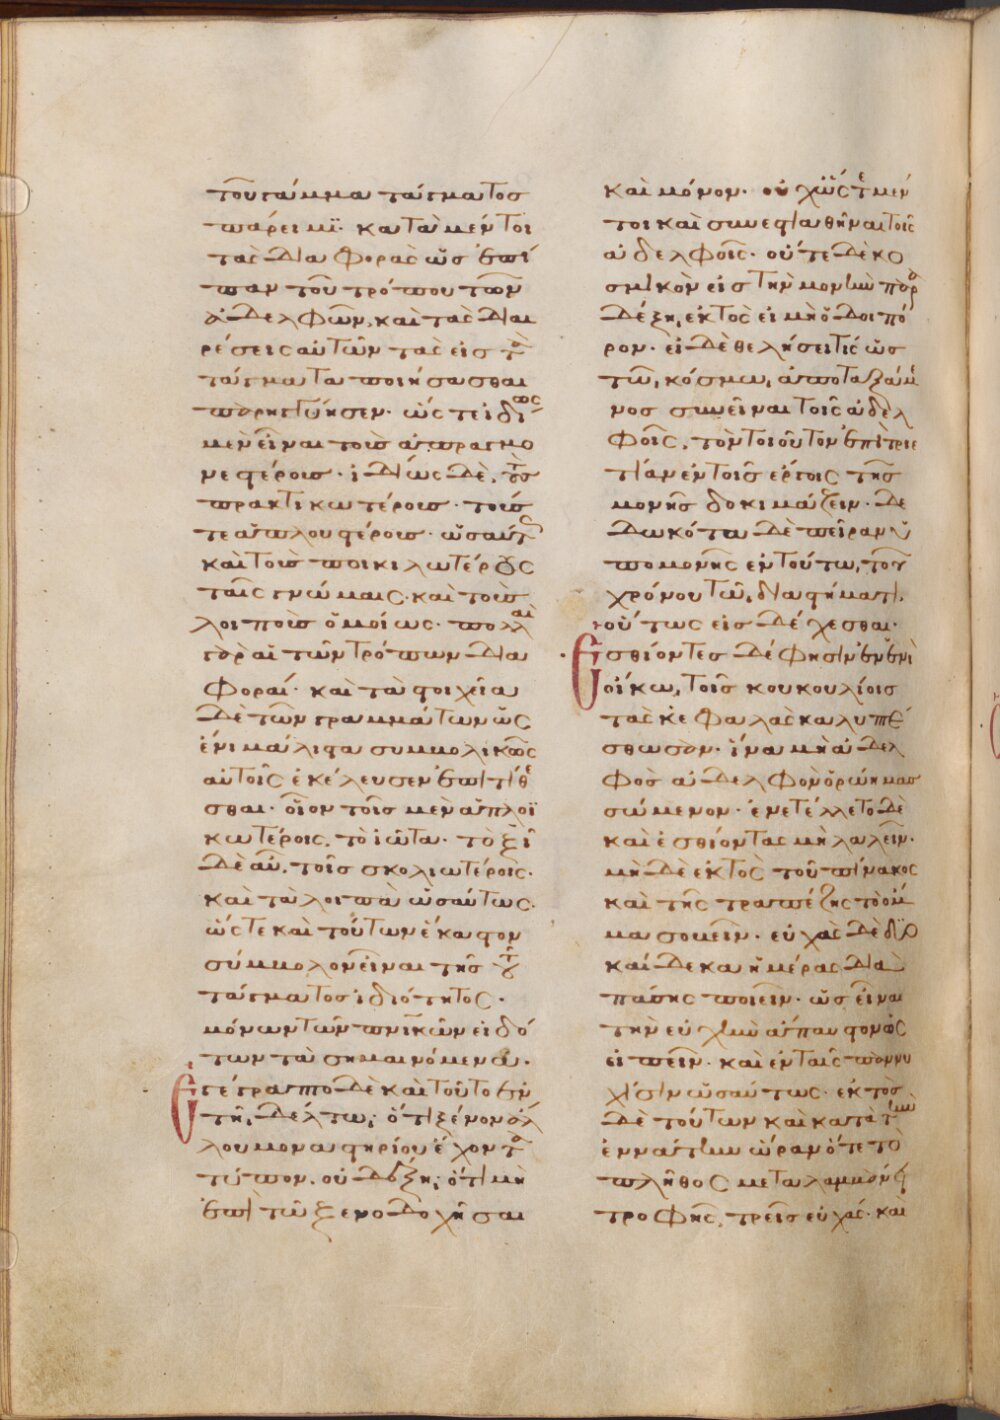 τοῦ γάμμα τάγματος
πάρειμι· κατὰ μέντοι
τὰς διαφορὰς ὡς ἐπί
παν τοῦ τρόπου τῶν
ἀδελφῶν, καὶ τὰς διαι
ρέσεις αὐτῶν τὰς εἰς τὰ
τάγματα ποιήσασθαι
ὥστε ἰδίως
μὲν εἶναι τοῖς ἀπραγμο
νεστέροις· ἰδίως δὲ, τοῖς
πρακτικωτέροις· τοῖς
τε ἁπλουστέροις· ὡσαύτως
καὶ τοῖς ποικιλωτέροις
ταῖς γνώμαις· καὶ τοῖς
λοιποῖς ὁμοίως· πολλαὶ
γὰρ αἱ τῶν τρόπων δια
φοραί· καὶ τὰ στοιχεῖα
δὲ τῶν γραμμάτων ὡς
ἔνι μάλιστα συμβολικῶς
αὐτοῖς ἐκέλευσεν ἐπιτίθε
σθαι· οἷον τοῖς μὲν ἁπλοϊ
κωτέροις, τὸ ἰῶτα· τὸ ξῖ
δὲ αὖ, τοῖς σκολιωτέροις·
καὶ τὰ λοιπὰ ὡσαύτως·
ὥστε καὶ τούτων ἕκαστον
σύμβολον εἶναι τῆς τοῦ
τάγματος ἰδιότητος·
μόνων τῶν πνικῶν εἰδό
των τὰ σημαινόμενα·
Ἐγέγραπτο δὲ καὶ τοῦτο ἐν
τῇ δέλτῳ· ὅτι ξένον ἀλ
λου μοναστηρίου ἔχοντα
τύπον, οὐ δέξῃ· ὅτι μὴ
ἐπὶ τῶ ξενοδοχῆσαι
καὶ μόνον· οὐ χὼς τε μέν
τοι καὶ συνεστιαθῆναι τοῖς
ἀδελφοῖς· οὔτε δὲ κο
σμικὸν εἰς τὴν μονὴν παρα
δέξῃ, ἐκτὸς εἰ μὴ ὁδοιπό
ρον· εἰ δὲ θελήσει τίς ὡς
τῶ, κόσμω, ἀποταξάμε
νος συνεῖναι τοῖς ἀδελ
φοῖς, τὸν τοιοῦτον ἐπὶ τριε
τίαν ἐν τοῖς ἔργοις τῆς
μονῆς δοκιμάζειν· δε
δωκότα δὲ πεῖραν ὑ
πομονῆς ἐν τούτω, τοῦ
χρόνου τῶ, διαστήματι,
οὕτως εἰσδέχεσθαι·
Ἐσθίοντες δέ φησιν ἐν ἑνὶ
οἴκω, τοῖς κουκουλίοις
τὰς κεφαλὰς καλυπτέ
σθωσαν· ἵνα μὴ ἀδελ
φὸς ἀδελφὸν ὁρώη μασ
σώμενον· ἐνετέλλετο δὲ
καὶ ἐσθίοντας μὴ λαλεῖν·
μὴ δὲ ἐκτὸς τοῦ πίνακος
καὶ τῆς τραπέζης τὸ ὄμ
μα σοβεῖν· εὐχὰς δὲ δυο
καίδεκα ἡμέρας διὰ
πάσης ποιεῖν· ὡς εἶναι
τὴν εὐχὴν ἅπαν στόμα
εἰπεῖν· καὶ ἐν ταῖς παννυ
χίσιν ὡσαύτως· ἐκτὸς
δὲ τούτων καὶ κατὰ τὴν
ἐννάτην ὥραν ὅτε τὸ
πλῆθος μεταλαμβάνει
τροφῆς, τρεῖς εὐχάς· καὶ